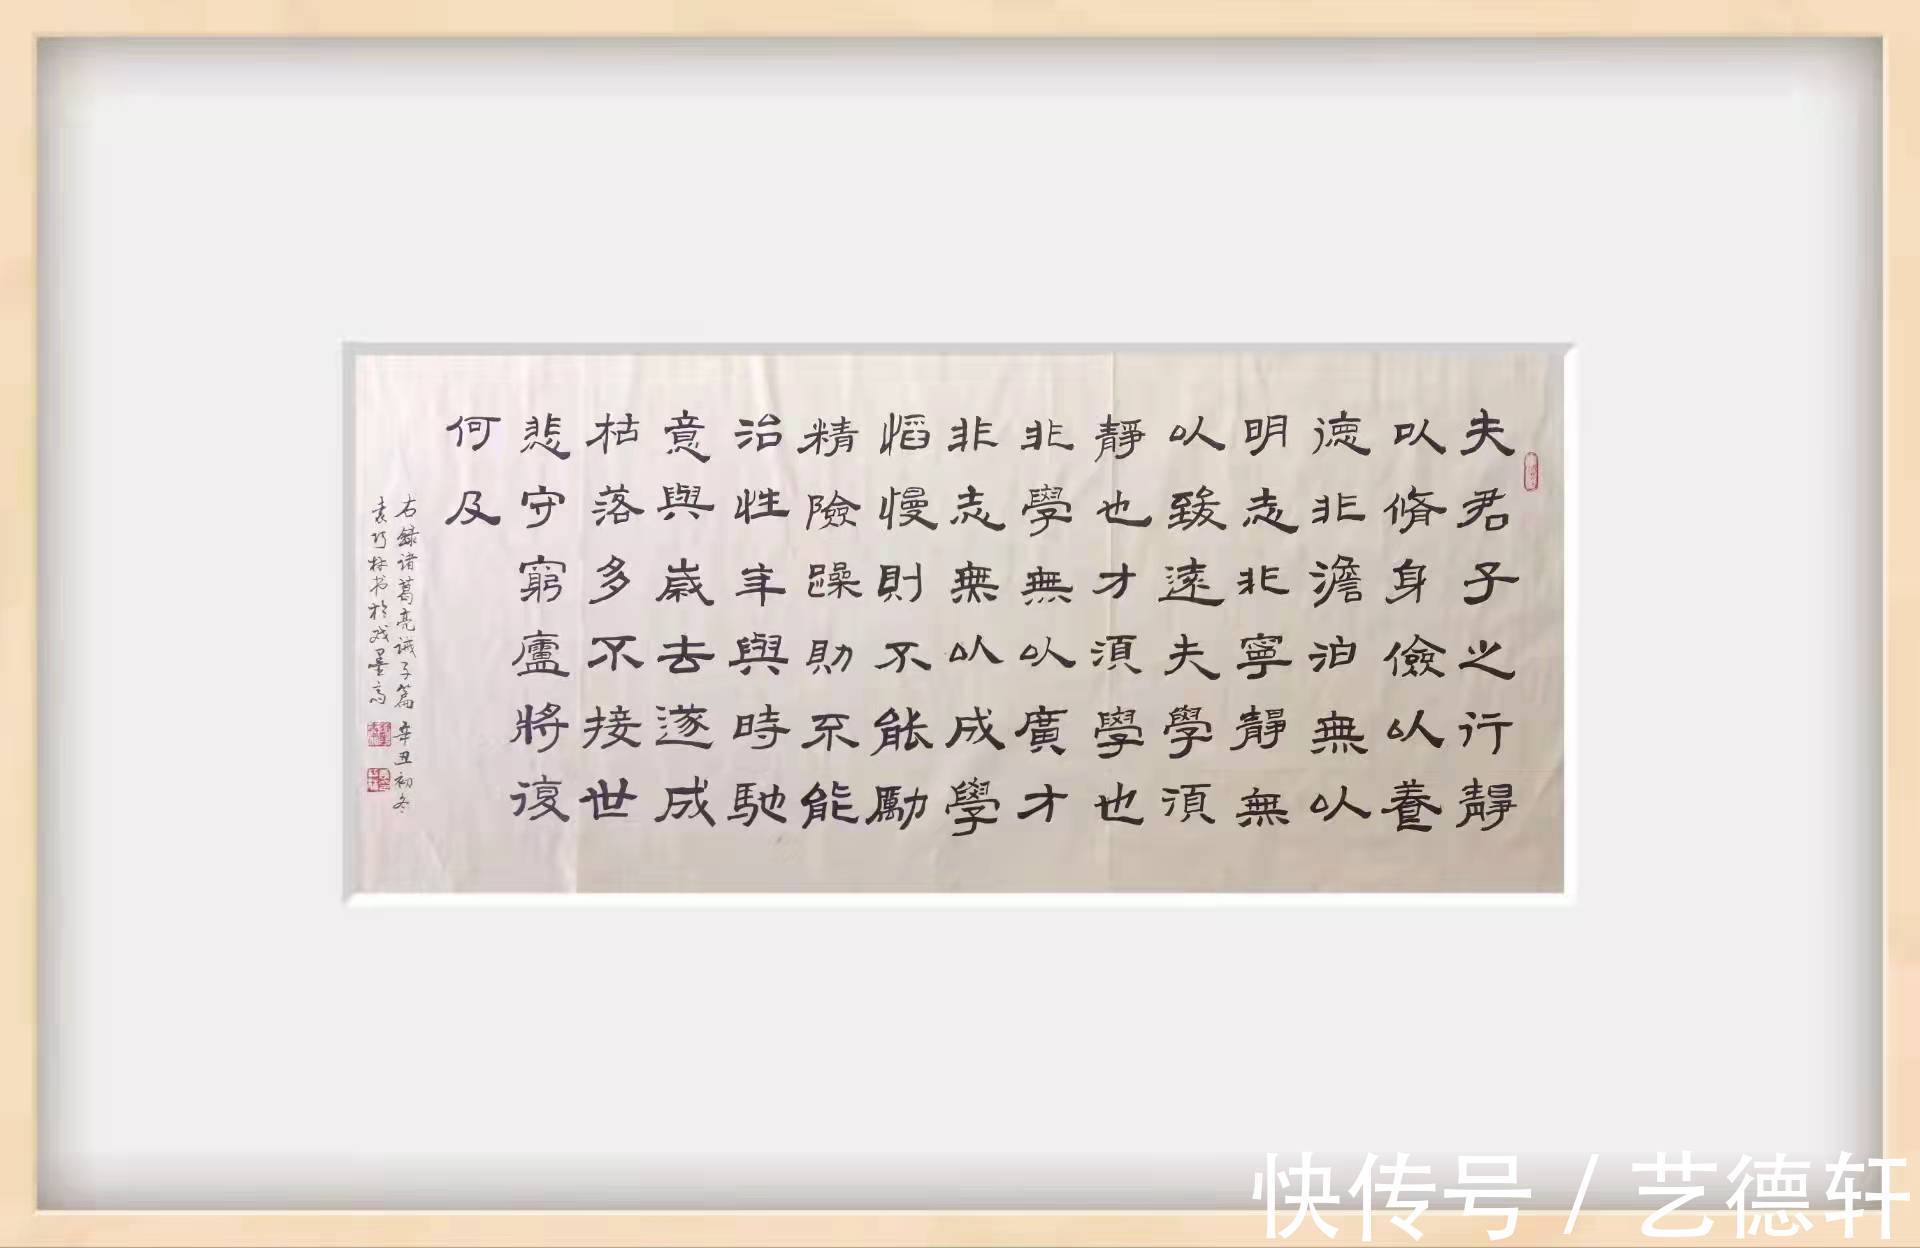 夫君子之行靜
以脩身儉以養
德非澹泊無以
明志非寧靜無
以致遠夫學須
靜也才須學也
非學無以廣才
非志無以成學
慆慢則不能勵
精險躁則不能
治性年與時馳
意與歲去遂成
枯落多不接世
悲守窮廬將復
何及
右錄诸葛亮诫子篇 辛丑初冬
袁巧梅书於戏墨斋
快传号 / 艺德轩